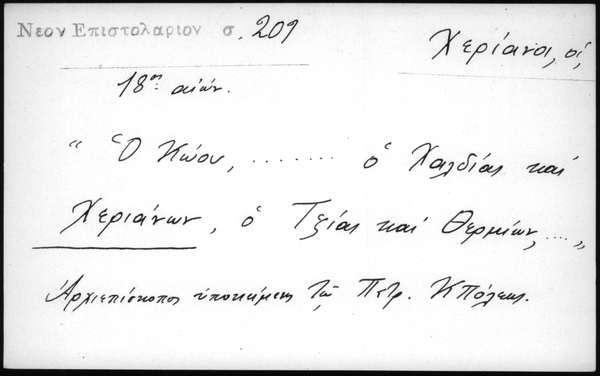 Νεον Επιστολαριον σ. 209
Χερίανοι, οἱ
18ος αἰών.
" Ὁ Κώου, ........ ὁ Χαλδίας καὶ
Χεριάνων, ὁ Τζίας καὶ Θερμίων, .... "
Ἀρχιεπίσκοπος ὑποκείμενος τῷ Πατρ. ΚΠόλεως.